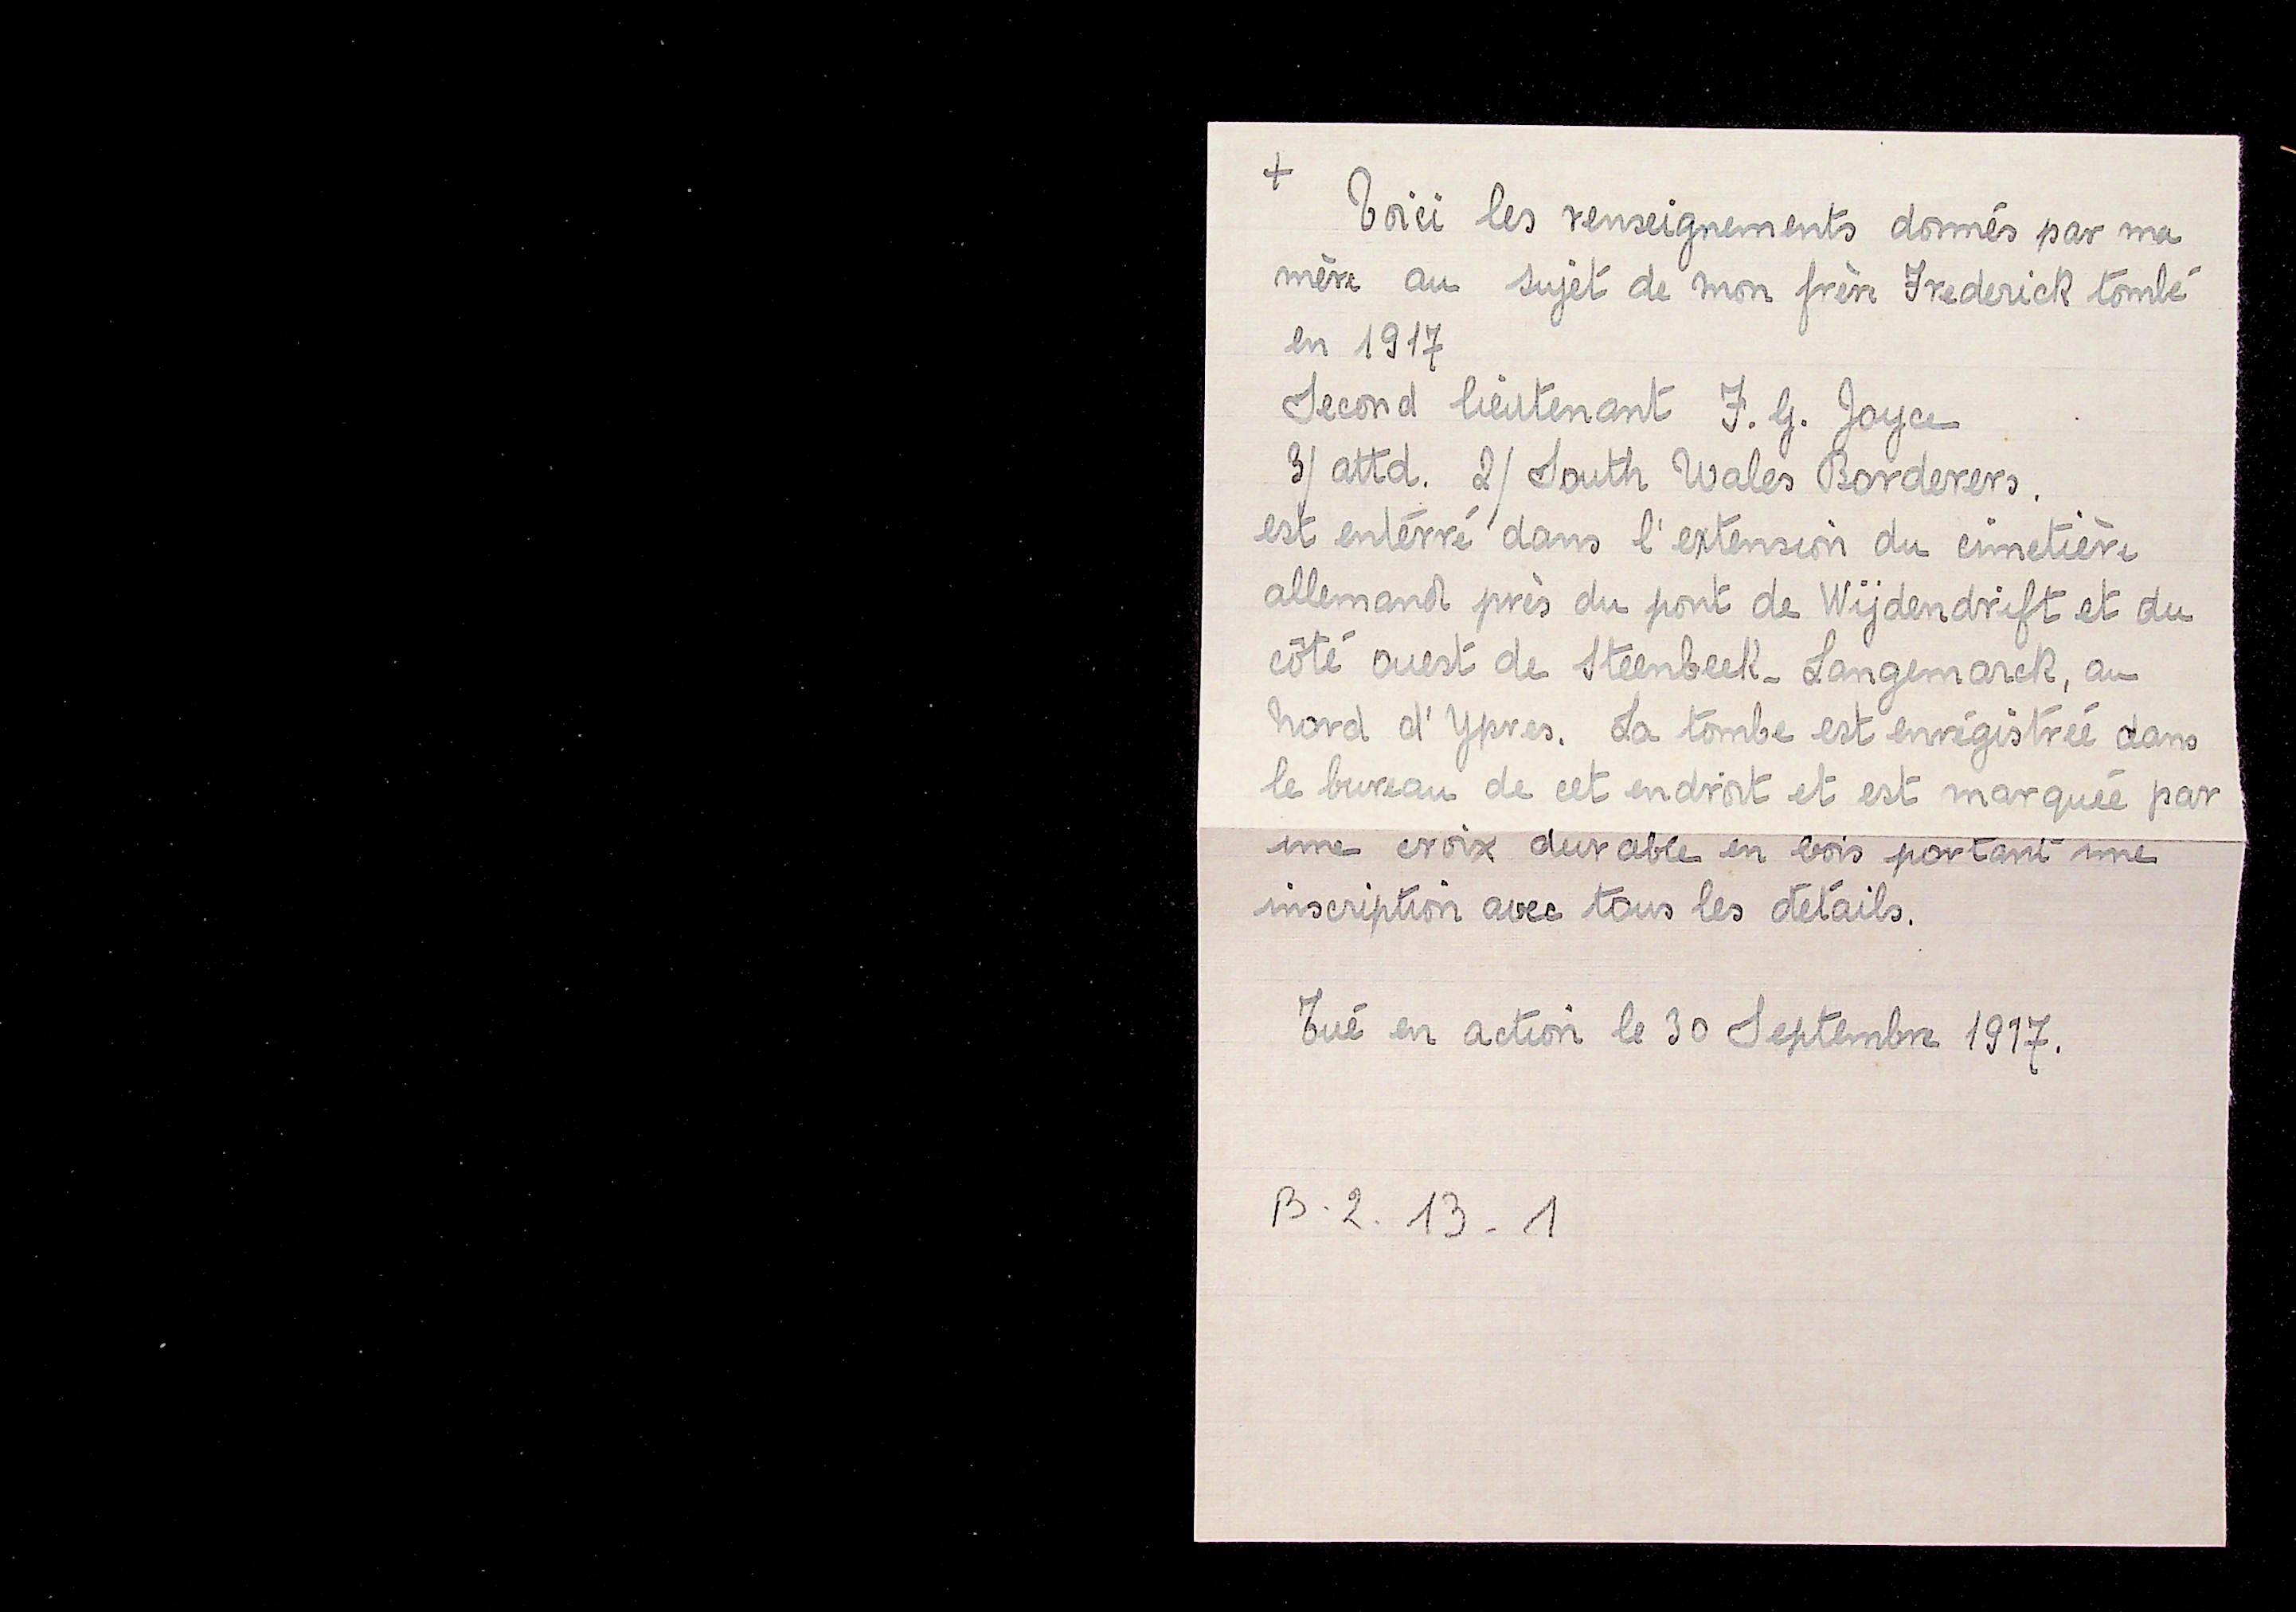 +
Voici les renseignements donnés par ma
mère au sujet de mon frère Frederick tombé
en 1917
Second lieutenant F. G. Joyce
3/ attd. 2/ South Wales Borderers.
est entérré dans l'extension du cimetière
allemand près du pont de Wijdendrift et du
côté ouest de Steenbeek - Langemarck, au
Nord d'Ypres. La tombe est enrégistrée dans
le bureau de cet endroit et est marquée par
une croix durable en bois portant une
inscription avec tous les détails.
Tué en action le 30 Septembre 1917.
B. 2. 13 - 1